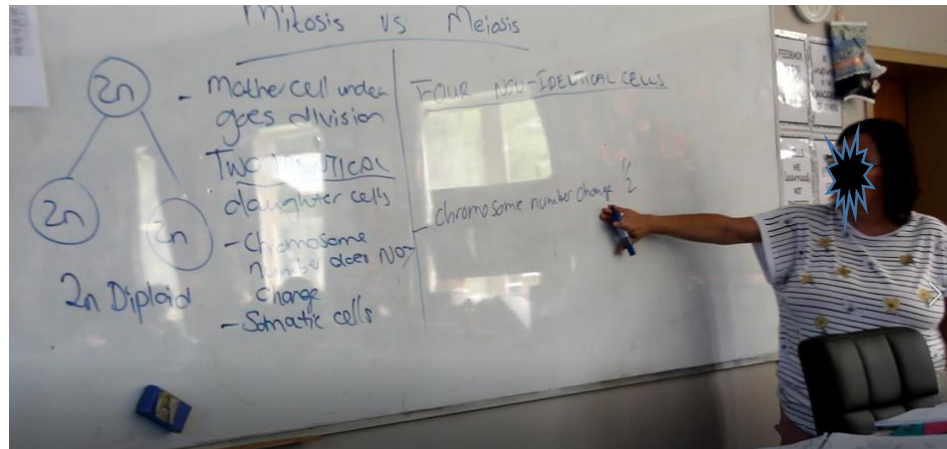 Mitosis vs Meiosis
2n
2n
2n
2n Diploid
- Mother cell under
goes division
TWO IDENTICAL
daughter cells
- Chromosome
number does NOT
change
- Somatic cells
FOUR NON-IDENTICAL CELLS
- chromosome number change 1/2
FEEDBACK